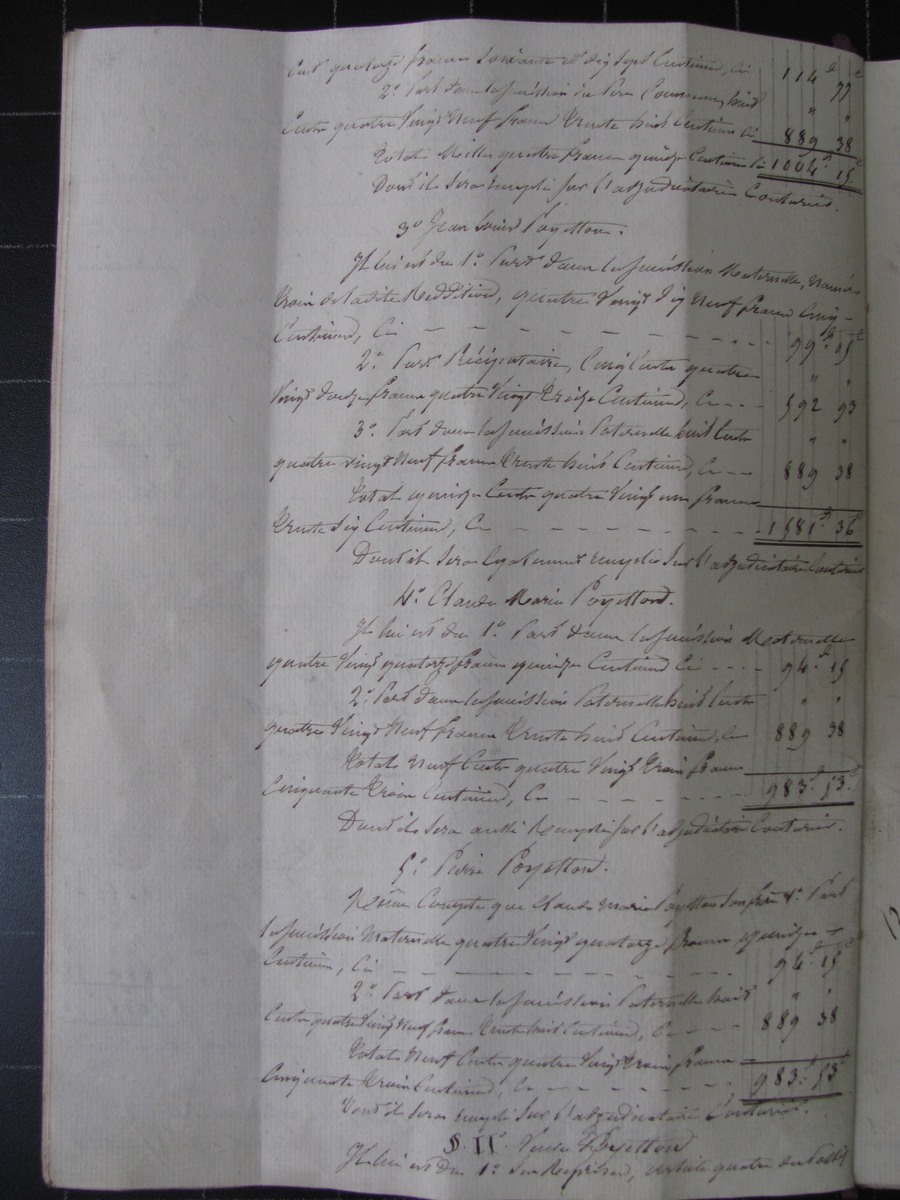 Cent quatorze francs soixante et dix sept Centimes, Ci 114 f 77 c
2° Part dans la succession du Père Commun, huit " "
Cents quatre Vingt Neuf francs trente huit Centimes Ci 889 38
Total Mille quatre francs quinze Centimes Ci 1004 f 15 c
Dont il sera rempli sur l'adjudicataire Couturier.
3° Jean Louis Poyetton.
Il lui est du 1° Part dans la succession Maternelle,
trois de ladite Reddition, quatre Vingt Dix Neuf francs Cinq
Centimes, Ci - - - 99 f 05 c
2° Part Réciproitaire, Cinq Cents quatre " "
Vingt douze francs quatre Vingt treize Centimes, Ci - - 592 93
3° Part dans la succession Paternelle huit Cents " "
quatre vingt Neuf francs trente huit Centimes, Ci - - 889 38
Total quinze Cents quatre Vingt un francs
trente Six Centimes, Ci - - - 1581 f 36 c
Dont il sera également rempli sur l'adjudicataire Couturier
4° Claude Marie Poyetton.
Il lui est du 1° Part dans la succession Maternelle
quatre Vingt quatorze francs quinze Centimes Ci - - 94 f 15
2° Part dans la succession Paternelle huit Cents " "
quatre Vingt Neuf francs trente huit Centimes, Ci 889 38
Total Neuf Cents quatre Vingt trois francs
Cinquante trois Centimes, Ci - - - 983 f 53 c
Dont il sera aussi Rempli sur l'adjudicataire Couturier.
5° Pierre Poyetton.
Même Compte que Claude Marie Poyetton son frère 1° Part
la succession Maternelle quatre Vingt quatorze francs quinze
Centimes, Ci - - - 94 f 15 c
2° Part dans la succession Paternelle huit " "
Cents quatre Vingt Neuf francs trente huit Centimes, Ci - - 889 38
Total Neuf Cents quatre Vingt trois francs
Cinquante trois Centimes, Ci - - - 983 f 53 c
Dont il sera rempli sur l'adjudicataire Couturier.
§. II. Veuve Poyetton
Il lui est du 1° Ses Reprises, article quatre du